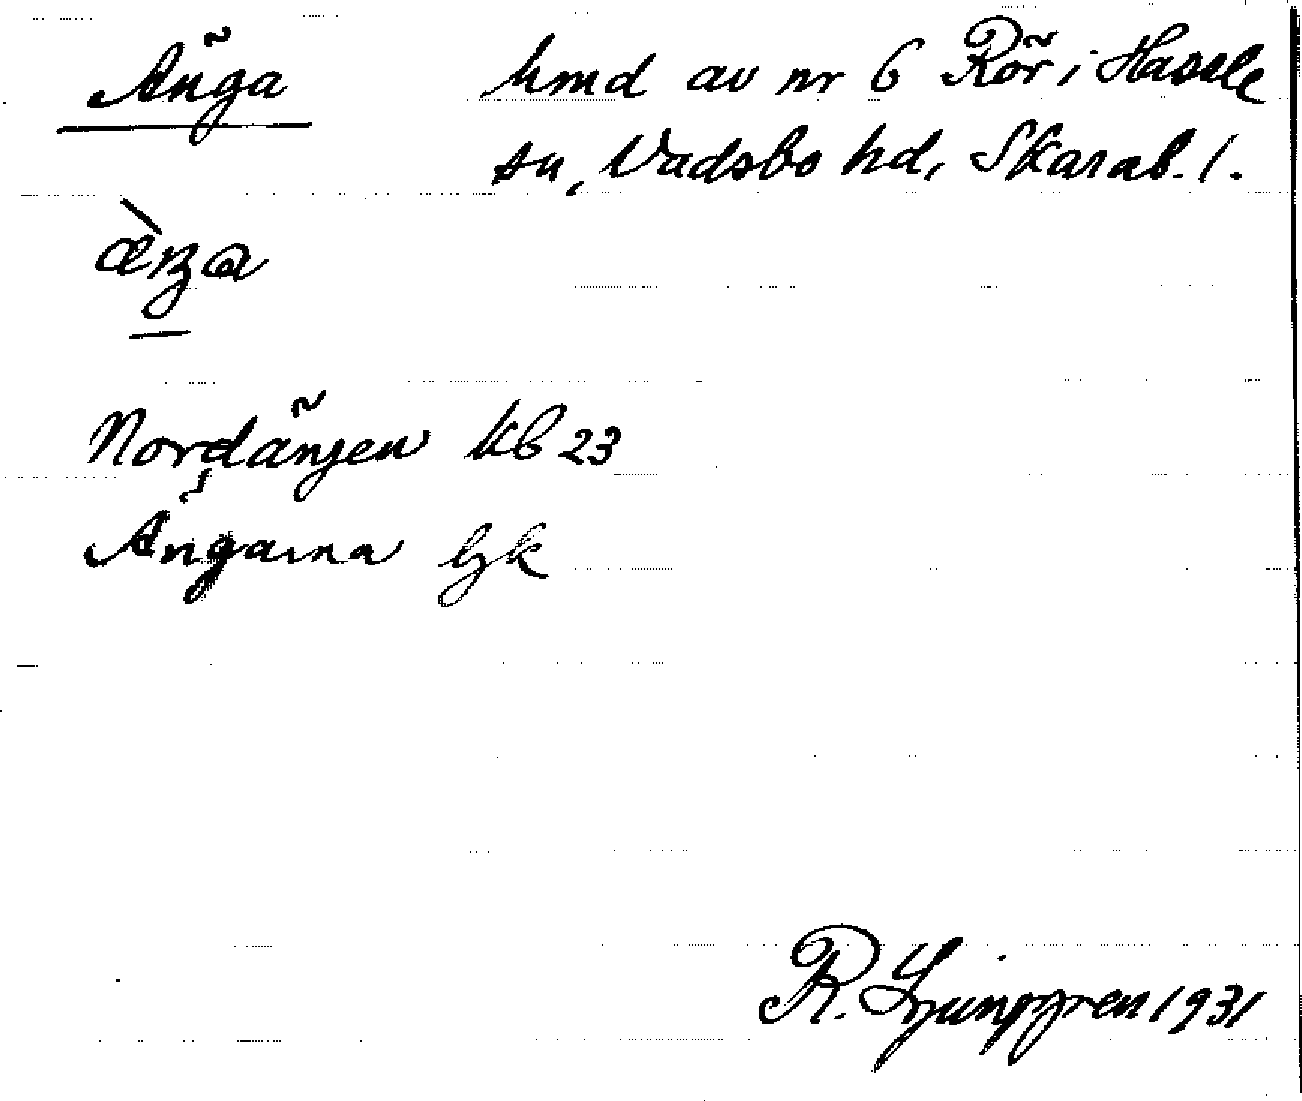 Änga hmd av nr 6 Rör i Hassle
sn, Vadsbo hd, Skarab. l.
æ̀ŋa
Nordänjen kb 23
Ängarna hk
R. Ljunggren 1931